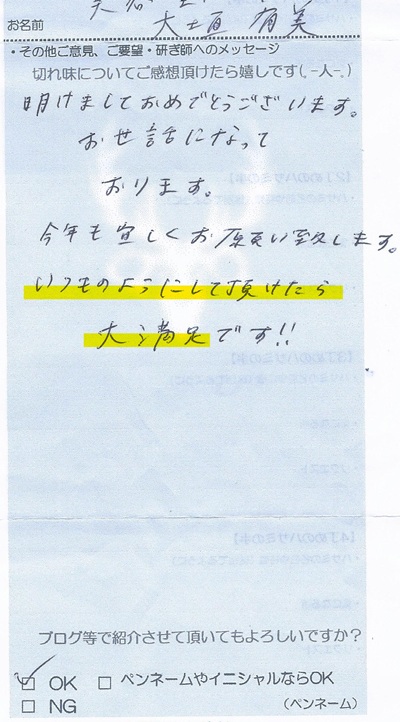 お名前 大垣 有美
・その他ご意見、ご要望・研ぎ師へのメッセージ
切れ味についてご感想頂けたら嬉しです(.-人-.)
明けましておめでとうございます。
お世話になって
おります。
今年も宜しくお願い致します。
いつものようにして頂けたら
大満足です!!
ブログ等で紹介させて頂いてもよろしいですか?
☑ OK □ ペンネームやイニシャルならOK
□ NG (ペンネーム)